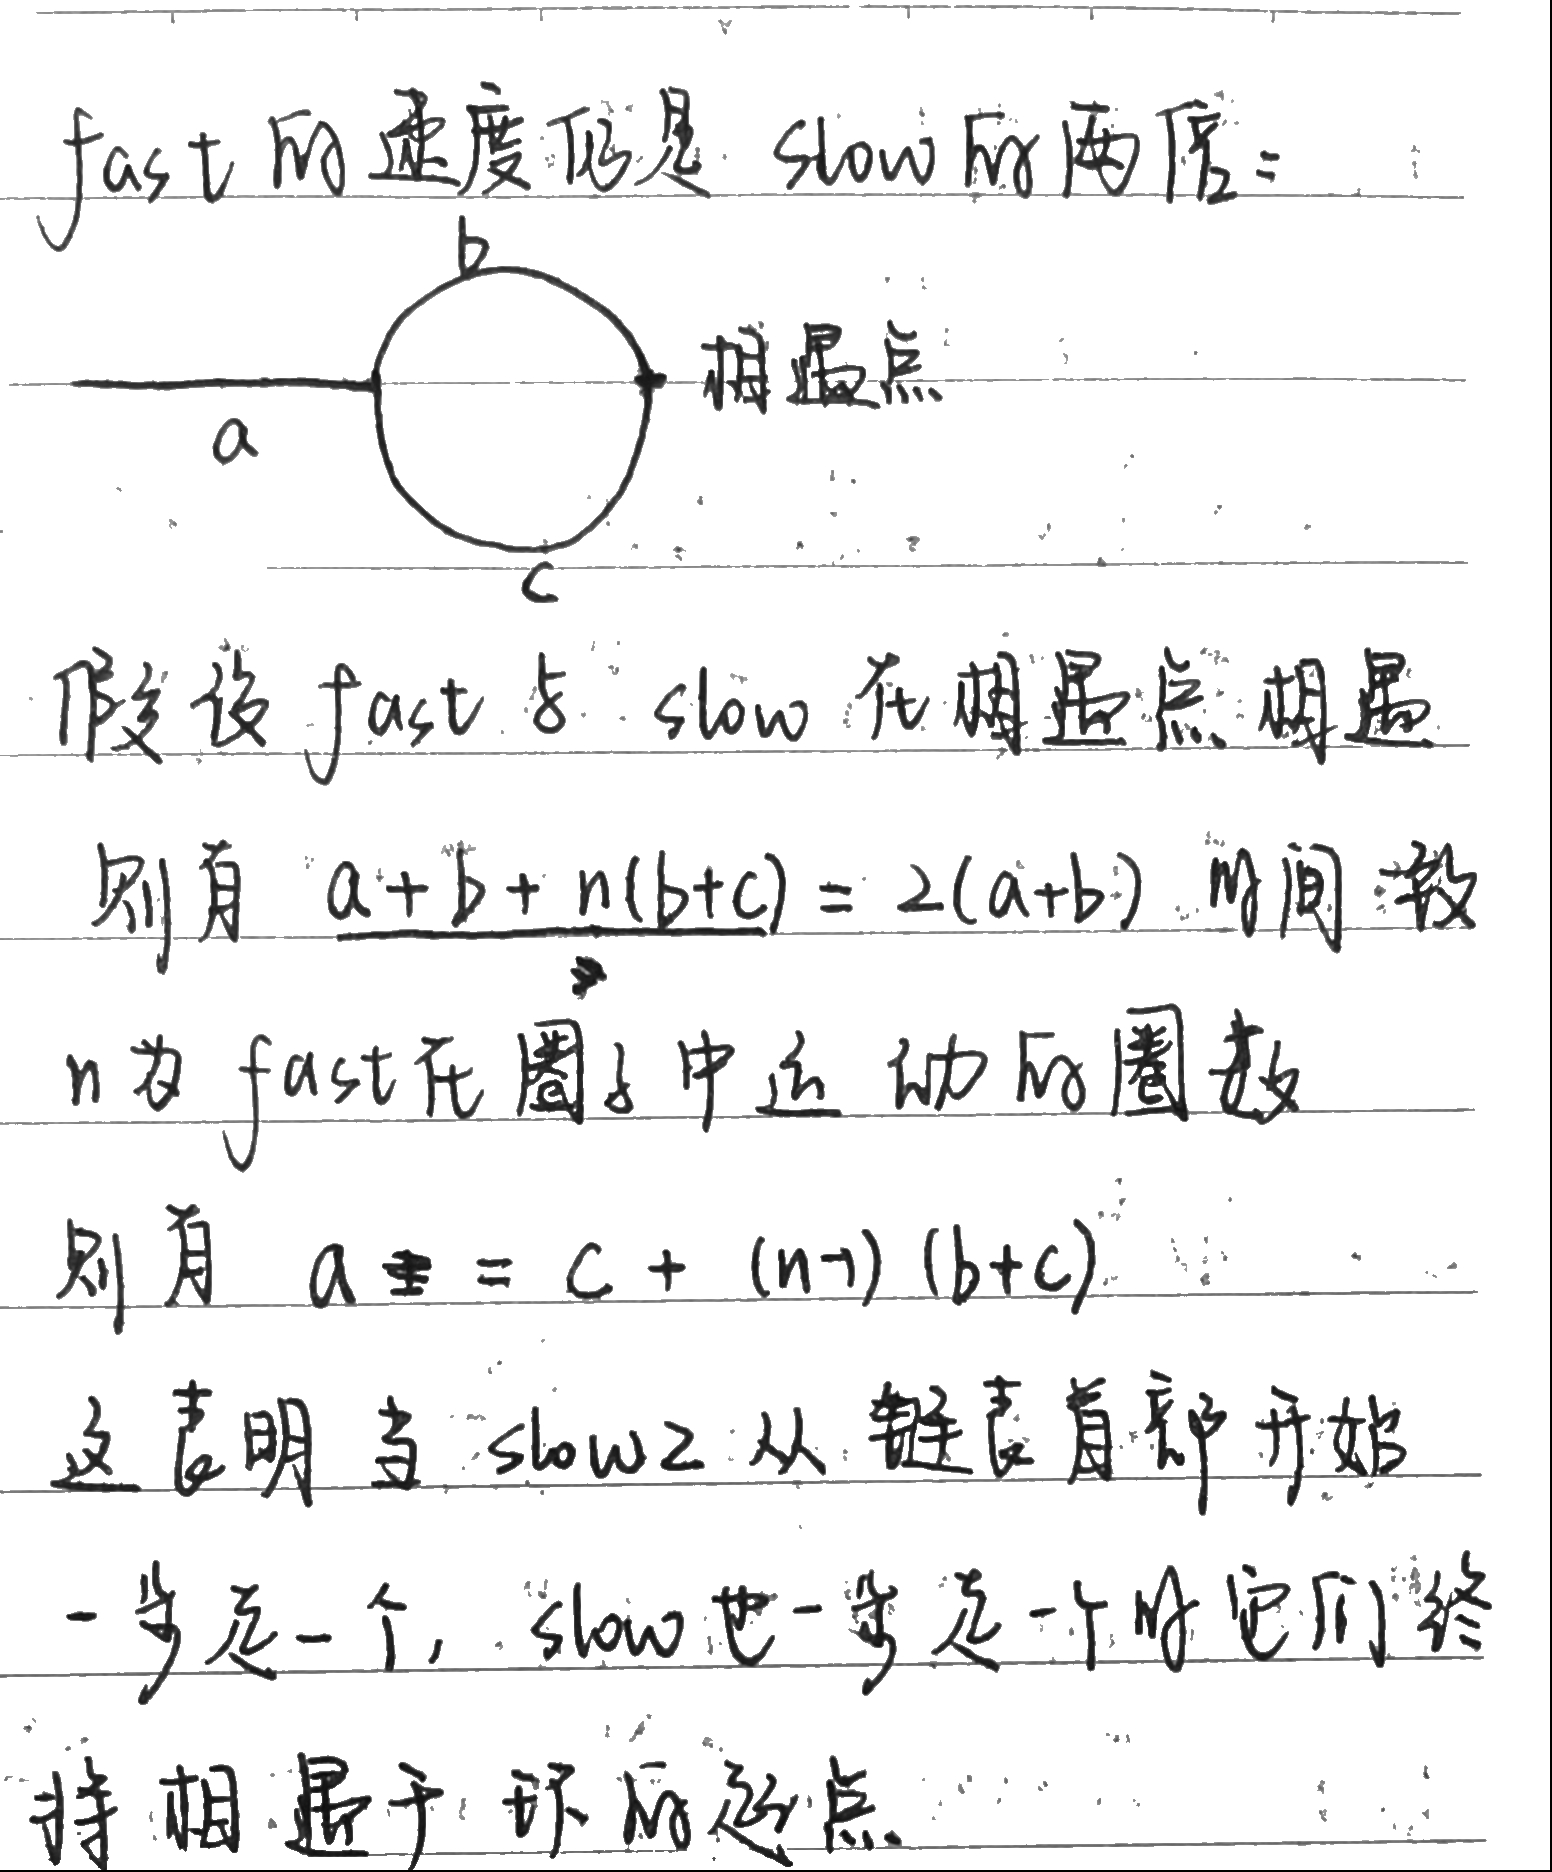 fast的速度仍是 slow的两倍：
b
相遇点
a
c
假设fast与 slow 在相遇点相遇
则有 a+b+n(b+c)=2(a+b) 时间
n为fast在圈子中运动的圈数
则有 a = c + (n-1)(b+c)
这表明当 slow2 从链表首部开始
一步走一个, slow也一步走一个时它们终
将相遇于环的起点